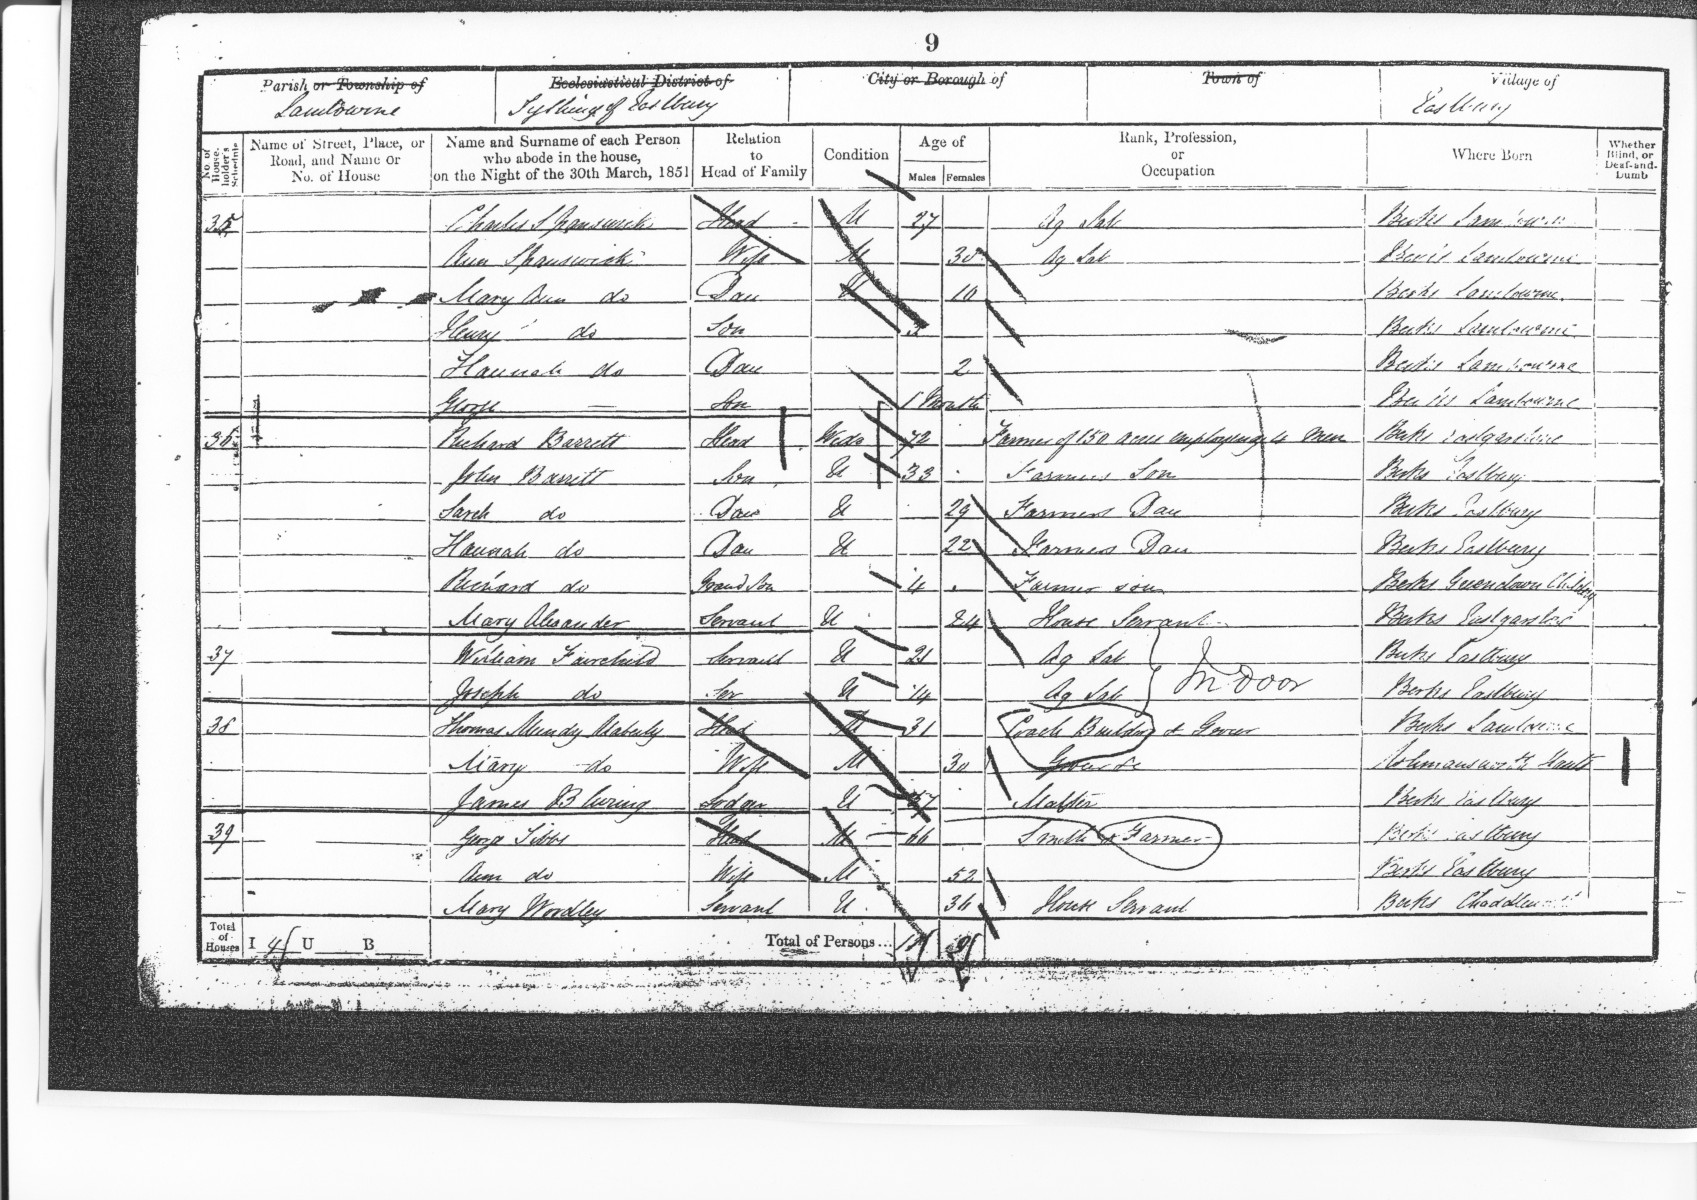 9
Parish or Township of Ecclesiastical District of City or Borough of Town of Village of
Lambourne Tything of Eastbury Eastbury
No. of House-holder's Schedule
Name of Street, Place, or Road, and Name or No. of House
Name and Surname of each Person who abode in the house, on the Night of the 30th March, 1851
Relation to Head of Family
Condition
Age of
Males Females
Rank, Profession, or Occupation
Where Born
Whether Blind, or Deaf-and-Dumb
35 Charles Spanswick Head M 27 Ag Lab Berks Lambourne
Ann Spanswick Wife M 30 Ag Lab Berks Lambourne
Mary Ann do Dau U 10 Berks Lambourne
Henry do Son Berks Lambourne
Hannah do Dau 2 Berks Lambourne
George Son 1 Month Berks Lambourne
36 Richard Barrett Head Wido 72 Farmer of 150 acres employing 4 men Berks Eastgarstone
John Barrett Son U 33 Farmers Son Berks Eastbury
Sarah do Dau U 29 Farmers Dau Berks Eastbury
Hannah do Dau U 22 Farmers Dau Berks Eastbury
Richard do Grand Son 4 Farmer son Berks
Mary Alexander Servant U 24 House Servant Berks Eastgarston
37 William Fairchild Servant U 21 Ag Lab Berks Eastbury
In Door
Joseph do Ser U 14 Ag Lab Berks Eastbury
38 Thomas Mundy Maberly Head M 31 Coach Builder & Grocer Berks Lambourne
Mary do Wife M 30 Hants
James Lodger U 37 Malster Berks Eastbury
39 George Tibbs Head M 66 Smith & Farmer Berks Eastbury
Ann do Wife M 52 Berks Eastbury
Mary Wordley Servant U 36 House Servant Berks
Total of Houses I 4 U B Total of Persons...